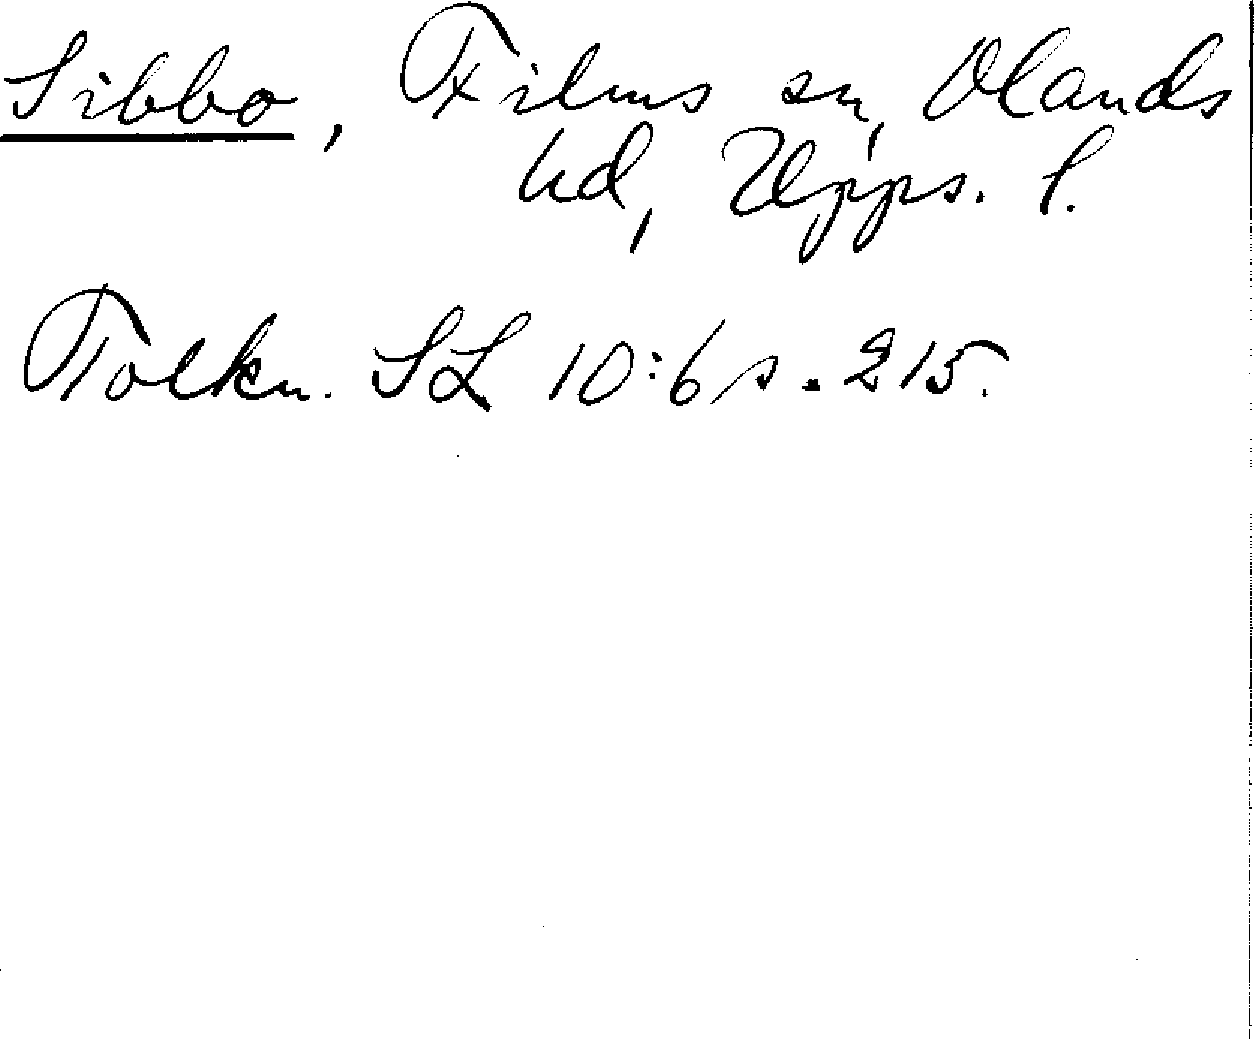 Sibbo, Films sn, Olands
hd, Upps. l.
Tolkn. SL 10:6 s. 215.